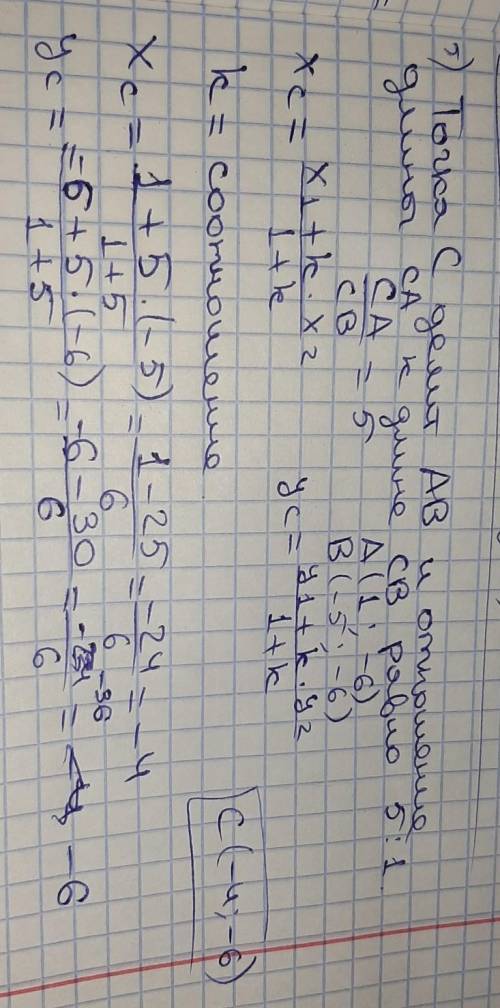 7) Точка С делит АВ и отношение
длины СА к длине СВ равно 5:1.
CA/CB = 5 A(1; -6)
B(-5; -6)
xc = (x1 + k · x2)/(1 + k) yc = (y1 + k · y2)/(1 + k)
k = соотношение
xc = (1 + 5 · (-5))/(1 + 5) = (1 - 25)/6 = -24/6 = -4
yc = (-6 + 5 · (-6))/(1 + 5) = (-6 - 30)/6 = -36/6 = -6
C(-4; -6)